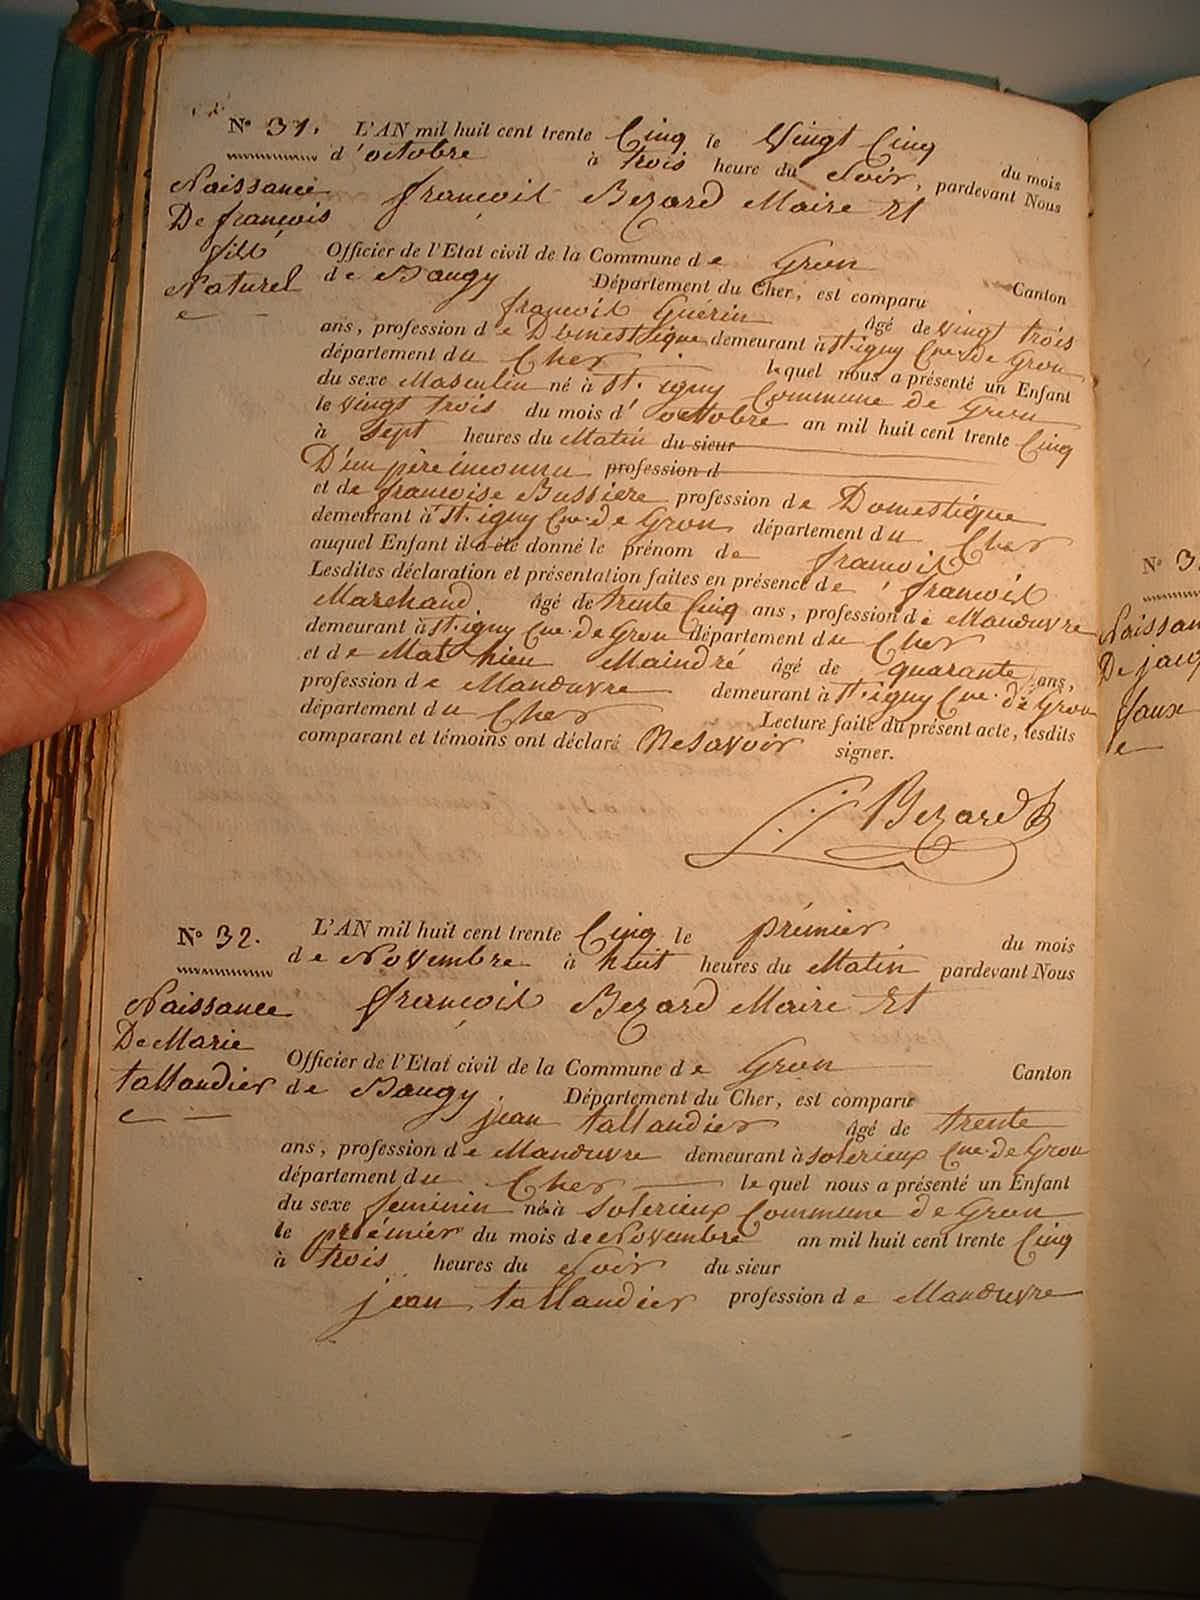 N° 31. L'AN mil huit cent trente Cinq le Vingt Cinq du mois
d'octobre à trois heure du Soir, pardevant Nous
Naissance
De françois
fils
Naturel
françois Bezard Maire Et
Officier de l'Etat civil de la Commune de Gron Canton
de Baugy Département du Cher, est comparu
françois Guérin âgé de vingt trois
ans, profession de Domestique demeurant à St. igny Cne. de Gron
département du Cher lequel nous a présenté un Enfant
du sexe Masculin né à St. igny Commune de Gron
le vingt trois du mois d'octobre an mil huit cent trente Cinq
à Sept heures du Matin du sieur
D'un père inconnu profession d
et de françoise Bussiere profession de Domestique
demeurant à St. igny Cne. de Gron département du Cher
auquel Enfant il a été donné le prénom de françois
Lesdites déclaration et présentation faites en présence de françois
Marchand âgé de trente Cinq ans, profession de Manœuvre
demeurant à St. igny Cne. de Gron département du Cher
et de Mathieu Maindré âgé de quarante ans,
profession de Manœuvre demeurant à St. igny Cne. de Gron
département du Cher Lecture faite du présent acte, lesdits
comparant et témoins ont déclaré Ne Savoir signer.
Bezard
N° 32. L'AN mil huit cent trente Cinq le prémier du mois
de Novembre à huit heures du Matin pardevant Nous
Naissance
De Marie
tallandier
françois Bezard Maire Et
Officier de l'Etat civil de la Commune de Gron Canton
de Baugy Département du Cher, est comparu
jean tallandier âgé de trente
ans, profession de Manœuvre demeurant à Solerieux Cne. de Gron
département du Cher lequel nous a présenté un Enfant
du sexe feminin né à Solerieux Commune de Gron
le prémier du mois de Novembre an mil huit cent trente Cinq
à trois heures du Soir du sieur
jean tallandier profession de Manœuvre
N° 3
Naissan
De jacq
faux